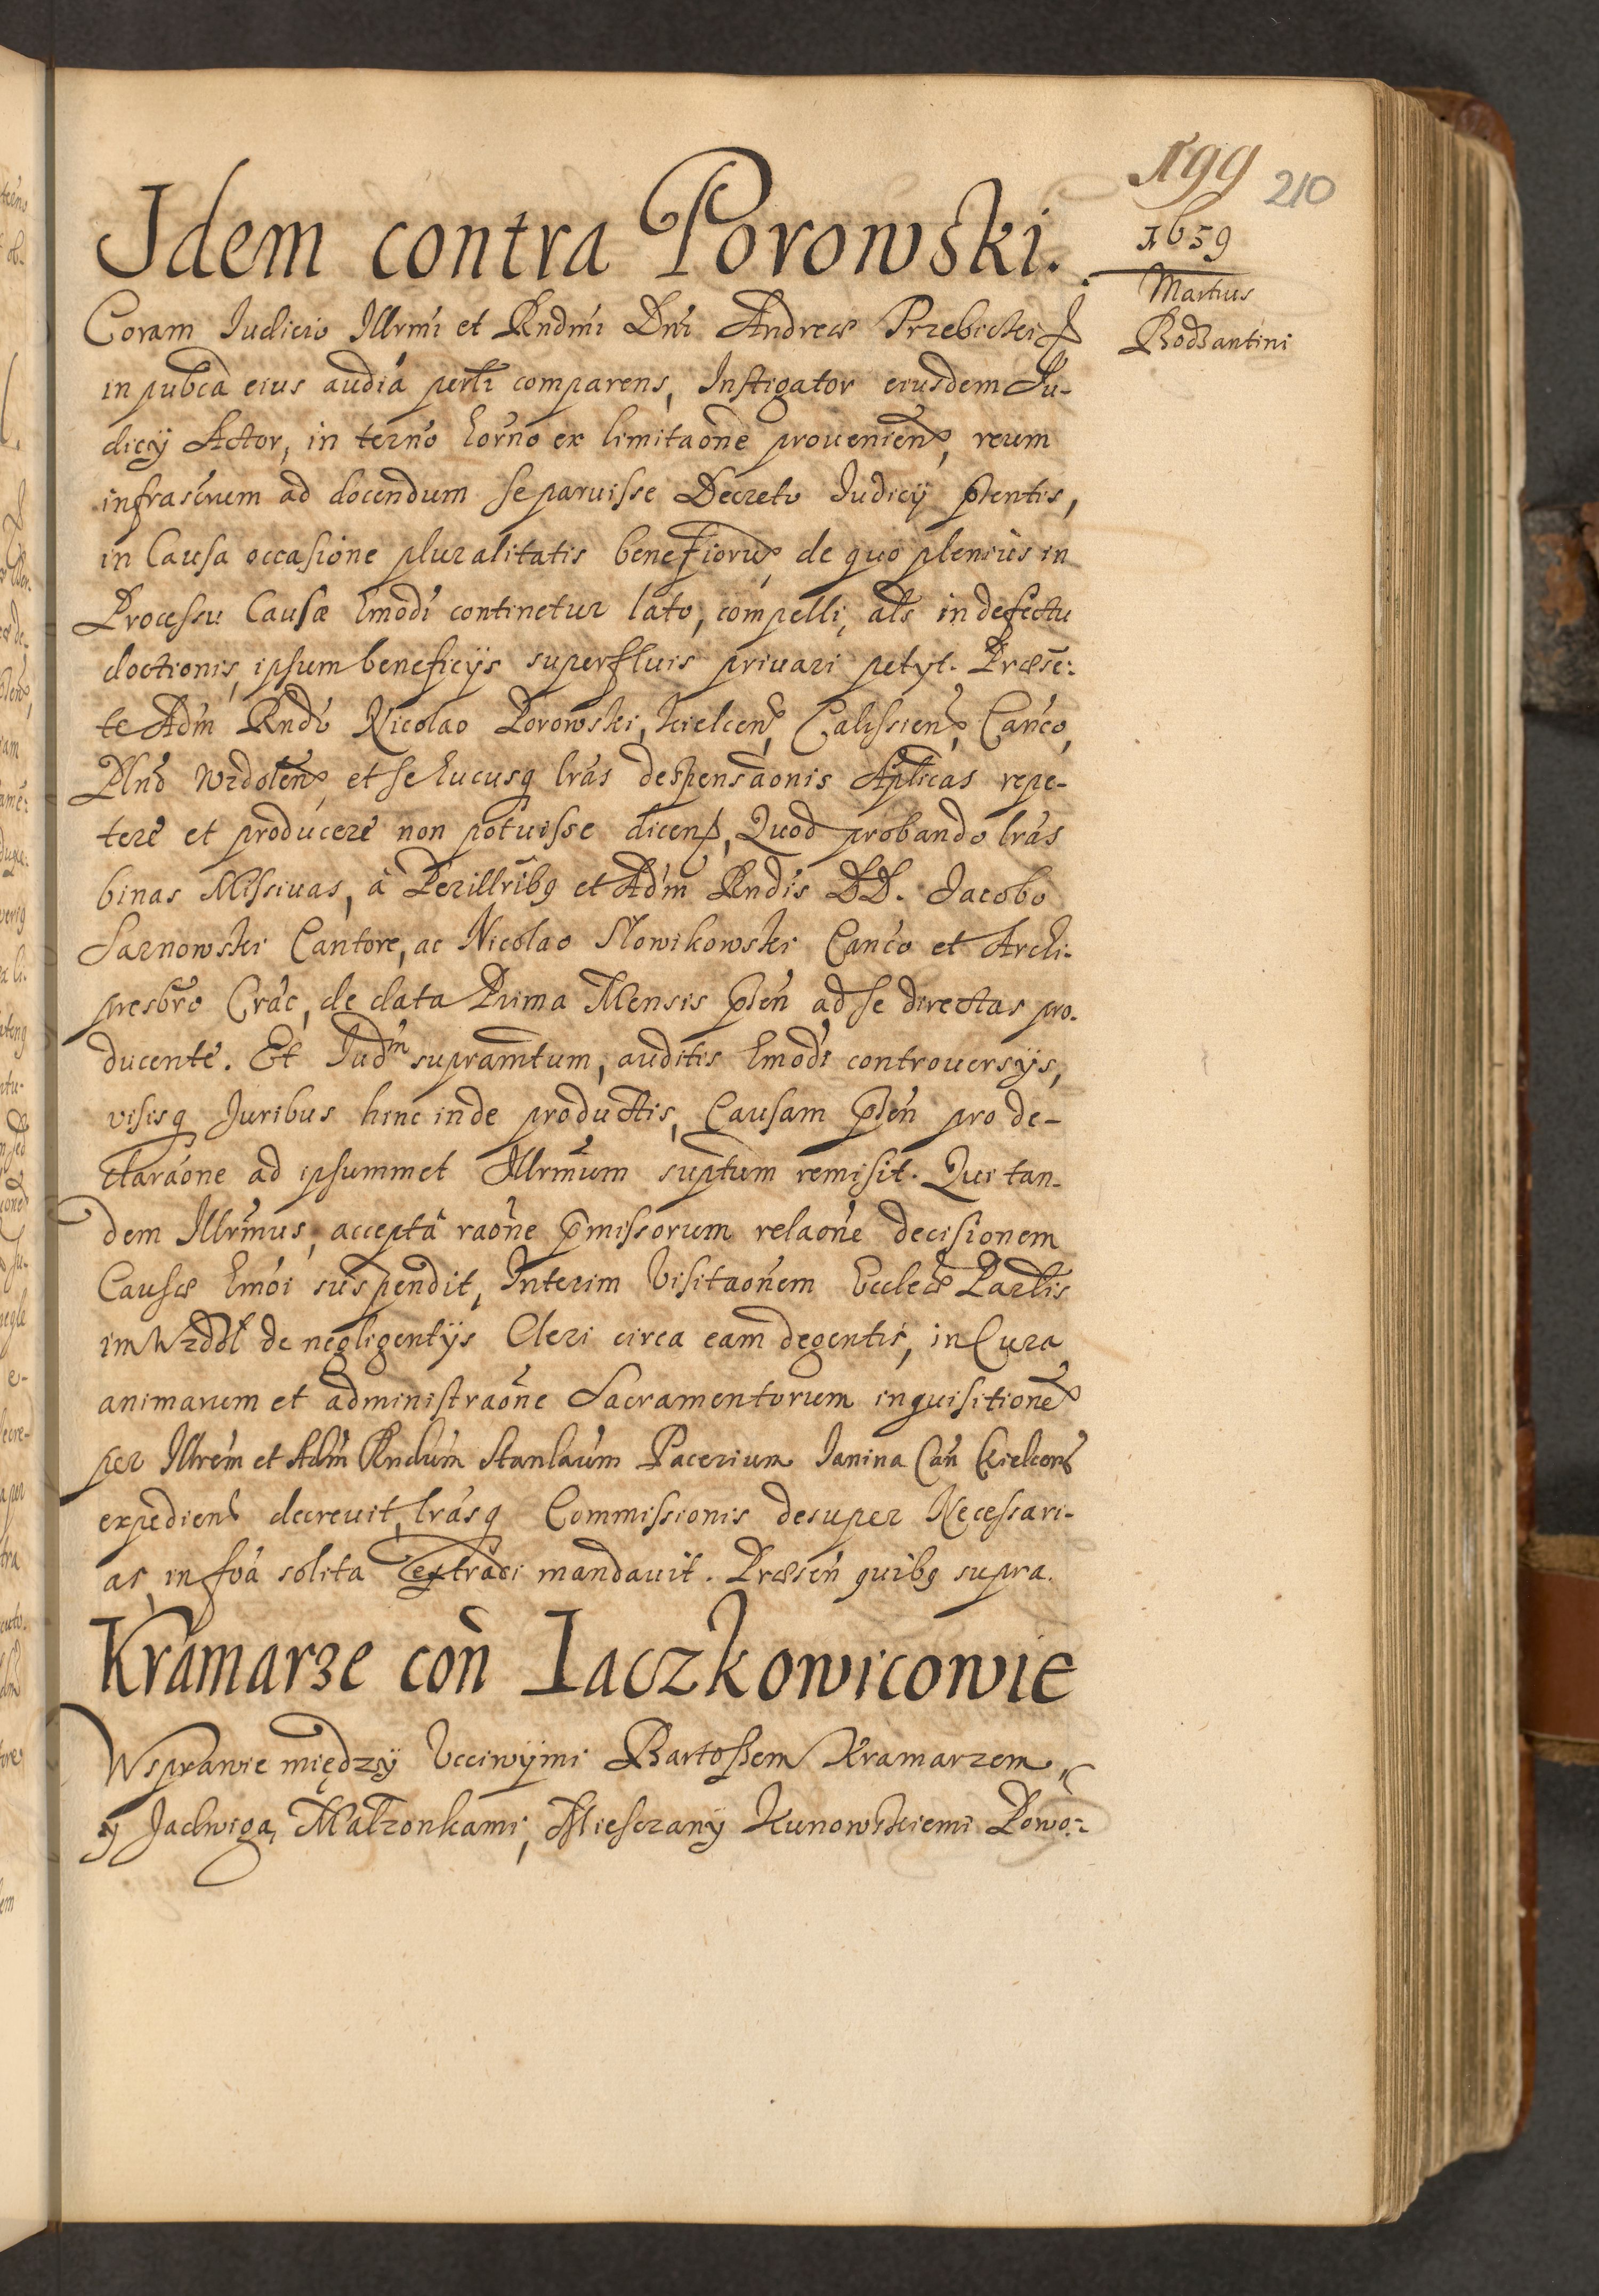 199
210
1659
Martius
Bodzantini
Idem contra Porowski.
Coram Iudicio Illrmi et Rndmi Dni Andreæ Trzebicki
in pubca eius audia perlr comparens, Instigator eiusdem Iu-
dicij Actor, in terno horno ex limitaone prouenien, reum
infrascrum ad docendum se paruisse Decreto Iudicij pntis,
in Causa occasione pluralitatis beneficioru, de quo plenius in
Processu Causæ hmodi continetur lato, compelli, als in defectu
doctionis, ipsum beneficijs superfluis priuari petyt. Præse:
te Adm Rndo Nicolao Porowski, Kielcen, Calissien, Canco,
Plno Wzdolen, et se hucusq lras despensaonis Aplicas repe-
tere et producere non potuisse dicen, Quod probando lras
binas Missiuas, à Perillribq et Adm Rndis DD. Jacobo
Sarnowski Cantore, ac Nicolao Slowikowski Canco et Archi-
presbro Crac, de data Prima Mensis pnen ad se directas pro-
ducente. Et Iudm supramtum, auditis hmodi controuersijs,
visisq Juribus hinc inde productis, Causam pnen pro de-
claraone ad ipsummet Illrmum suptum remisit. Qui tan-
dem Illrmus, acceptâ raone pmissorum relaone decisionem
Causæ hmoi suspendit, Interim Visitaonem Eccleæ Parlis
im Wzdol de negligentijs Cleri circa eam degentis, in Cura
animarum et administraone Sacramentorum inquisitione
per Illrem et Adm Rndum Stanlaum Pacerium Ianina Can Kielcen
expedien decreuit, lrasq Commissionis desuper Necessari-
as, in foa solita extradi mandauit. Præsen quibq supra.
Kramarze con Iaczkowicowie
W sprawie między Vcciwÿmi Bartoszem Kramarzem,
y Jadwigą, Małzonkami, Miesczany Kunowskiemi Powo: